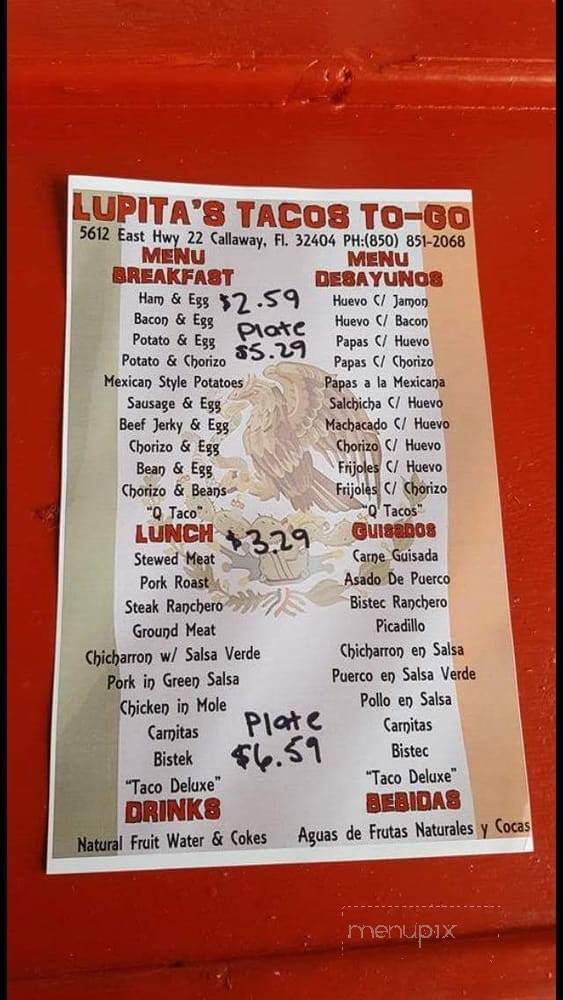 LUPITA'S TACOS TO-GO
5612 East Hwy 22 Callaway, Fl. 32404 PH:(850) 851-2068
MENU BREAKFAST
Ham & Egg $2.59
Bacon & Egg
Potato & Egg Plate
Potato & Chorizo $5.29
Mexican Style Potatoes
Sausage & Egg
Beef Jerky & Egg
Chorizo & Egg
Bean & Egg
Chorizo & Beans
"Q Taco"
LUNCH $3.29
Stewed Meat
Pork Roast
Steak Ranchero
Ground Meat
Chicharron w/ Salsa Verde
Pork in Green Salsa
Chicken in Mole
Carnitas Plate
Bistek $6.59
"Taco Deluxe"
DRINKS
Natural Fruit Water & Cokes
MENU DESAYUNOS
Huevo C/ Jamon
Huevo C/ Bacon
Papas C/ Huevo
Papas C/ Chorizo
Papas a la Mexicana
Salchicha C/ Huevo
Machacado C/ Huevo
Chorizo C/ Huevo
Frijoles C/ Huevo
Frijoles C/ Chorizo
"Q Tacos"
GUISADOS
Carne Guisada
Asado De Puerco
Bistec Ranchero
Picadillo
Chicharron en Salsa
Puerco en Salsa Verde
Pollo en Salsa
Carnitas
Bistec
"Taco Deluxe"
BEBIDAS
Aguas de Frutas Naturales y Cocas
menupix